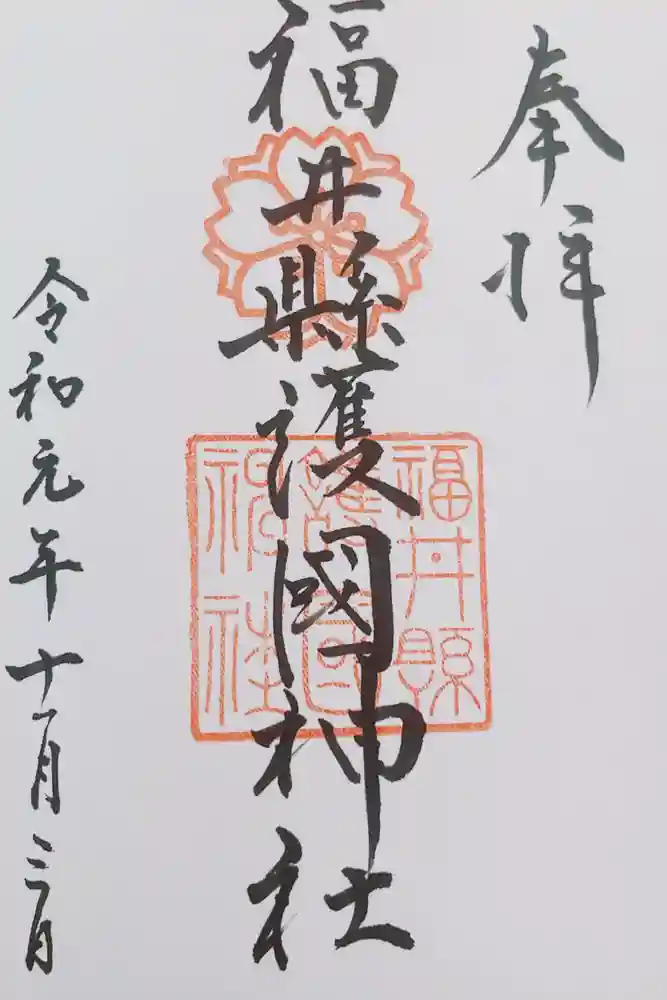 奉拝
福井縣護國神社
令和元年十一月三月
福井縣
護國
神社